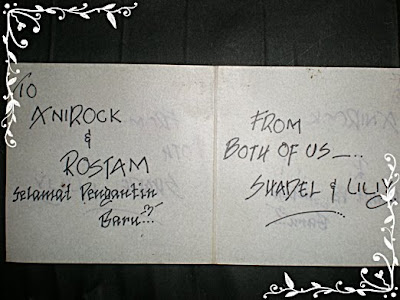 TO
ANIROCK
&
ROSTAM
Selamat Pengantin
Baru...
FROM
BOTH OF US__..
SHADEL & LILIY